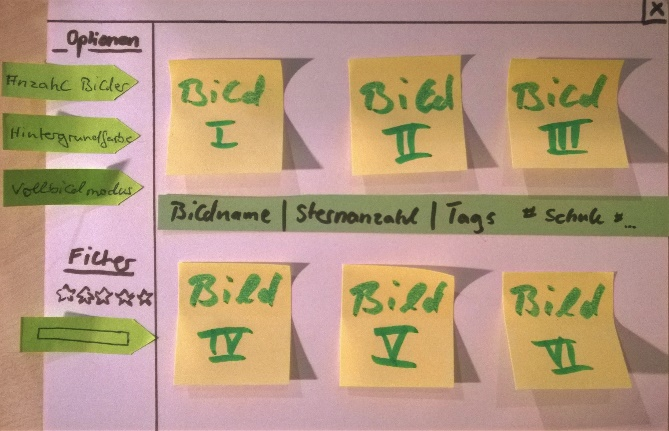 X
Optionen
Anzahl Bilder
Hintergrundfarbe
Vollbildmodus
Filter
Bild
I
Bild
II
Bild
III
Bildname | Sternanzahl | Tags # Schuk #...
Bild
IV
Bild
V
Bild
VI